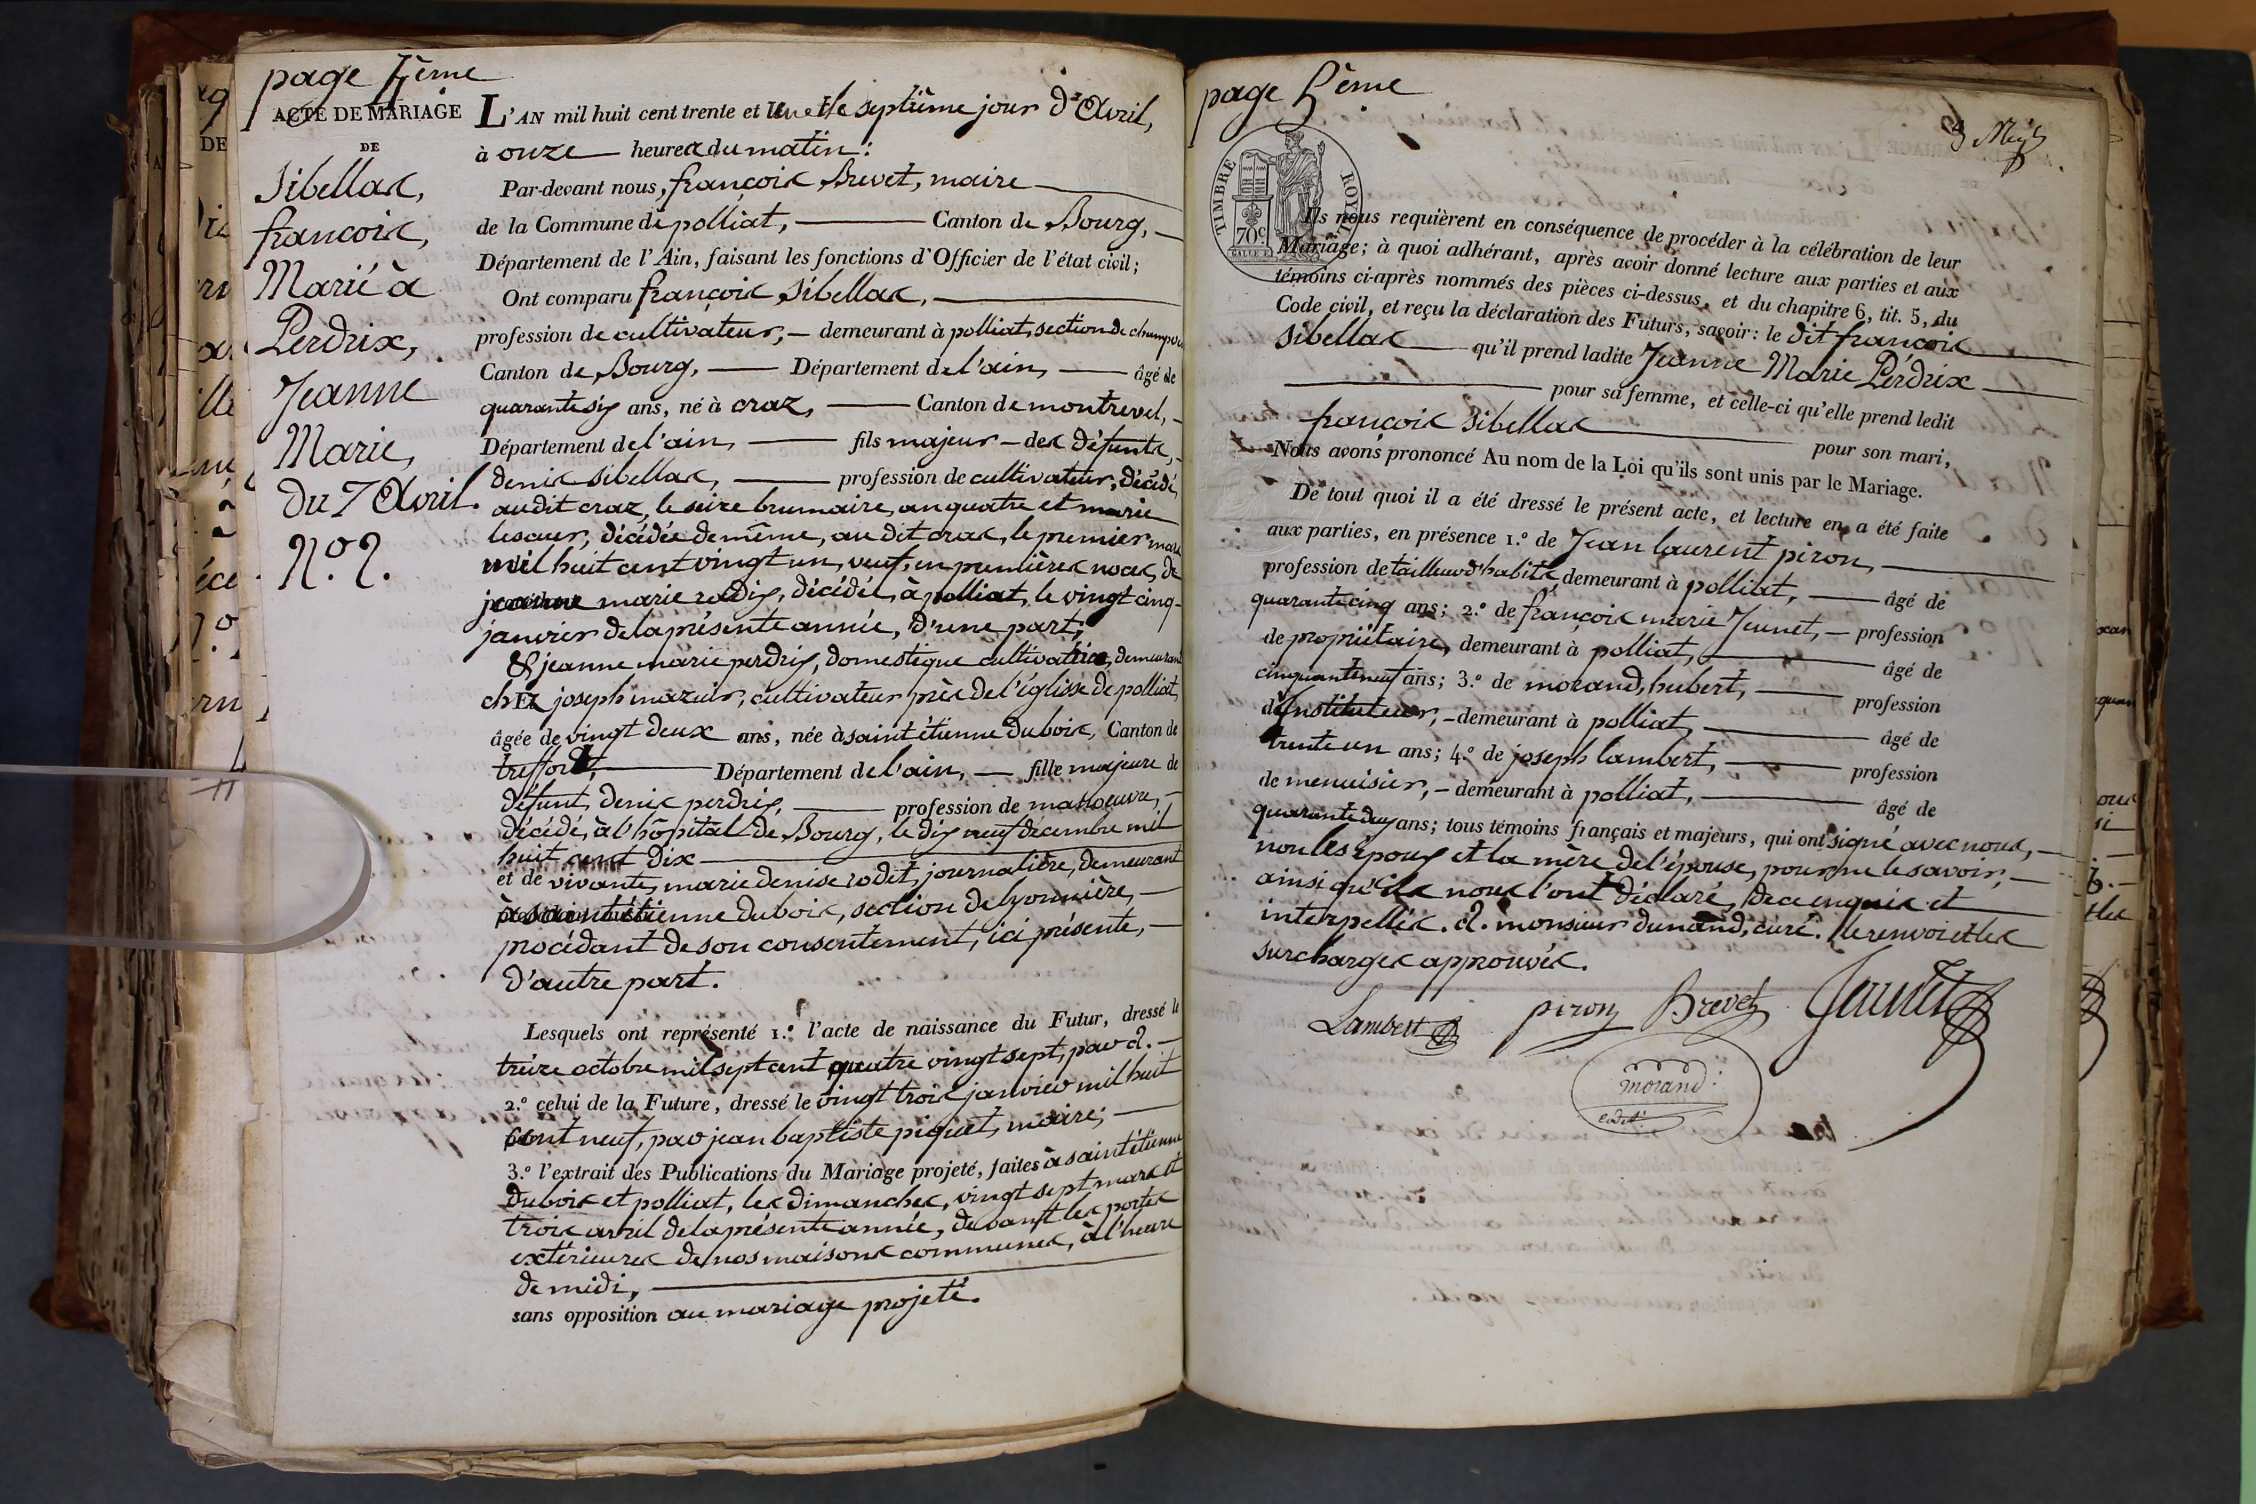 page 4ème
ACTE DE MARIAGE
DE
Sibellas,
françois,
Marié à
Perdrix,
Jeanne
Marie,
du 7 Avril.
L'AN mil huit cent trente et un et le septième jour d'Avril,
à onze heures du matin :
Par-devant nous, françois Brevet, maire
de la Commune de polliat, Canton de Bourg,
Département de l'Ain, faisant les fonctions d'Officier de l'état civil;
Ont comparu françois Sibellas,
profession de cultivateur, demeurant à polliat, section de
Canton de Bourg, Département de l'ain, âgé de
quarante six ans, né à craz, Canton de montrevel,
Département de l'ain, fils majeur des défunts,
denis sibellas, profession de cultivateur, décédé
audit craz, le seize brumaire, an quatre et marie
lesaur, décédée de même, au dit cras, le premier mars
mil huit cent vingt un, veuf, en premières noces, de
jeanne marie rodix, décédée, à polliat, le vingt cinq
janvier de la présente année, d'une part;
& jeanne marie perdrix, domestique cultivatrice, demeurant
chez joseph mazuir, cultivateur près de l'église de polliat,
âgée de vingt deux ans, née à saint étienne dubois, Canton de
treffort, Département de l'ain, fille majeure de
défunt, denis perdrix, profession de manoeuvre,
décédé, à l'hôpital de Bourg, le dix neuf décembre mil
huit cent dix
et de vivante, marie denise rodet, journalière, demeurant
à saint étienne dubois, section de lyonnière,
procédant de son consentement, ici présente,
d'autre part.
Lesquels ont représenté 1.º l'acte de naissance du Futur, dressé le
treize octobre mil sept cent quatre vingt sept, par d.
2.º celui de la Future, dressé le vingt trois janvier mil huit
cent neuf, par jean baptiste piquet, maire;
3.º l'extrait des Publications du Mariage projeté, faites à saint étienne
dubois et polliat, les dimanches, vingt sept mars et
trois avril de la présente année, devant les portes
extérieures de nos maisons communes, à l'heure
de midi,
sans opposition au mariage projeté.
page 5ème
TIMBRE ROYAL
70c
Ils nous requièrent en conséquence de procéder à la célébration de leur
Mariage; à quoi adhérant, après avoir donné lecture aux parties et aux
témoins ci-après nommés des pièces ci-dessus, et du chapitre 6, tit. 5, du
Code civil, et reçu la déclaration des Futurs, savoir: le dit françois
Sibellas qu'il prend ladite Jeanne Marie Perdrix
pour sa femme, et celle-ci qu'elle prend ledit
françois sibellas pour son mari,
Nous avons prononcé Au nom de la Loi qu'ils sont unis par le Mariage.
De tout quoi il a été dressé le présent acte, et lecture en a été faite
aux parties, en présence 1.º de Jean laurent piron,
profession de tailleur d'habits, demeurant à polliat, âgé de
quarante cinq ans; 2.º de françois marie Jeunet, profession
de propriétaire, demeurant à polliat, âgé de
cinquante neuf ans; 3.º de morand, hubert, profession
d'instituteur, demeurant à polliat, âgé de
trente un ans; 4.º de joseph lambert, profession
de menuisier, demeurant à polliat, âgé de
quarante deux ans; tous témoins français et majeurs, qui ont signé avec nous,
non les époux et la mère de l'épouse, pour ne le savoir,
ainsi qu'ils nous l'ont déclaré, de ce enquis et
interpellés. d. monsieur dunand, curé. le renvoi et les
surcharges approuvés.
Lambert piron Brevet Jeunet
morand